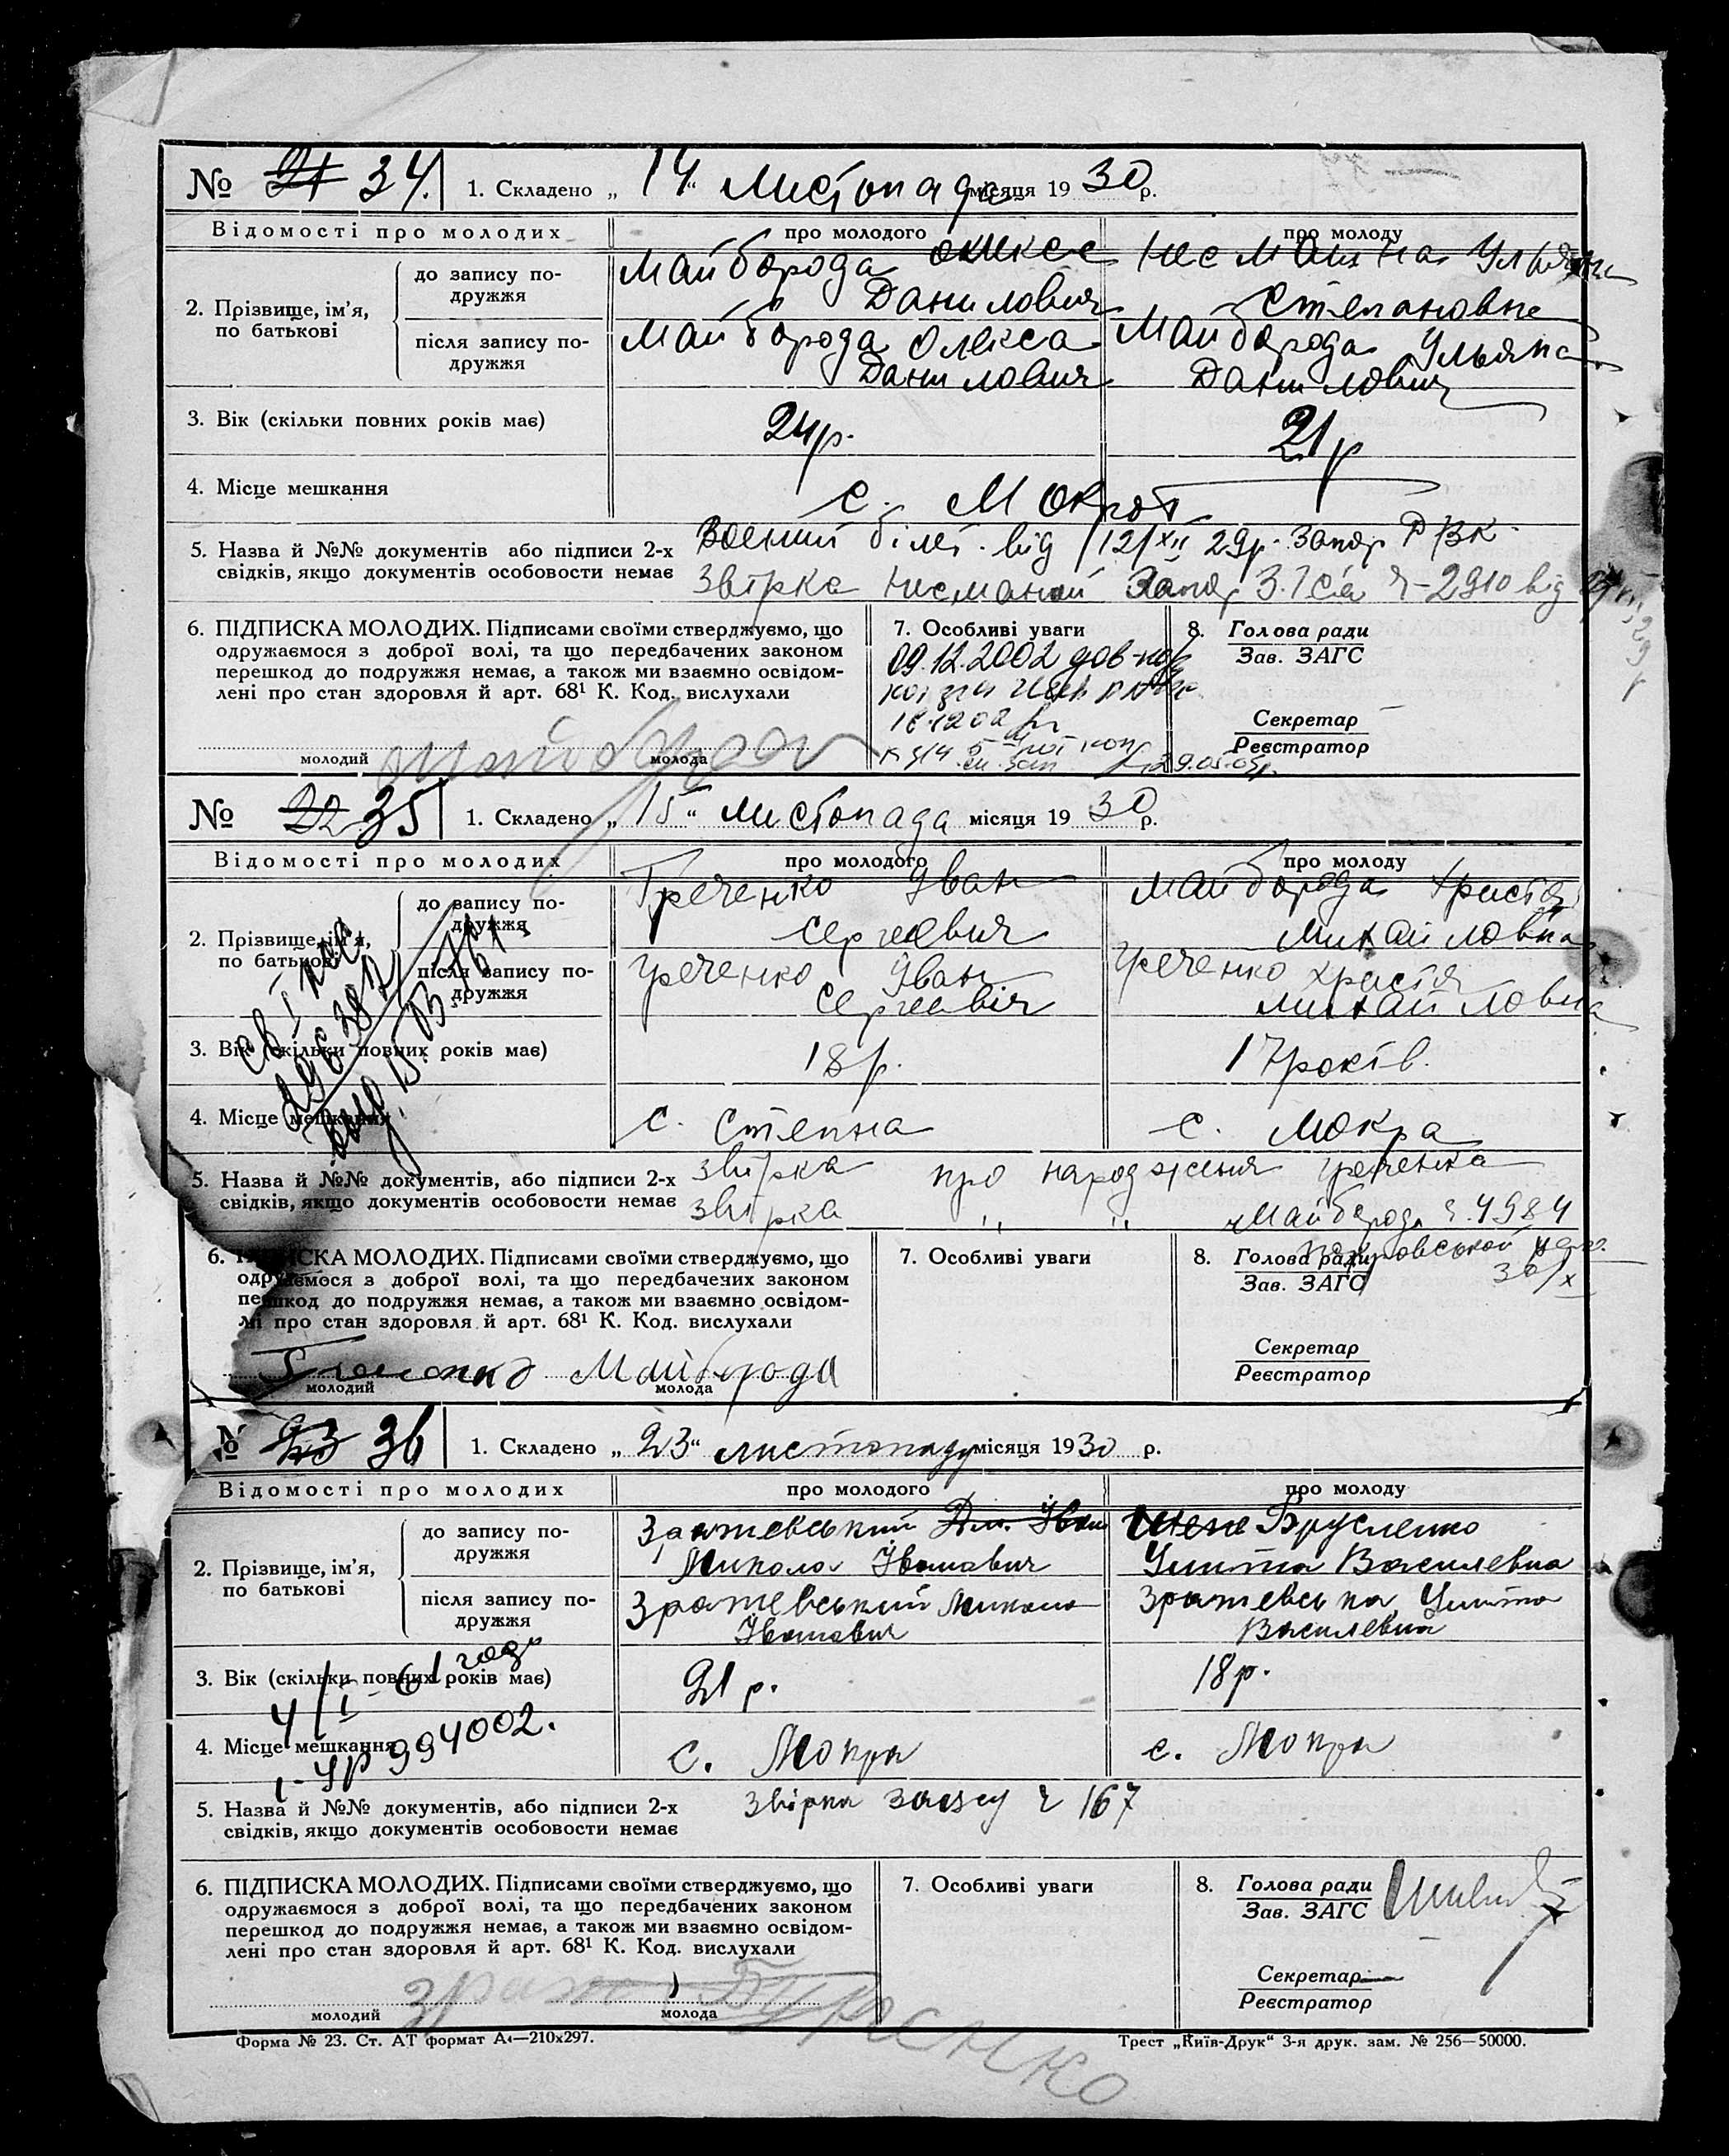 № 21 34. 1. Складено „ 14 “ листопада місяця 19 30 р.
Відомості про молодих про молодого про молоду
2. Прізвище, ім’я, по батькові
до запису по-
дружжя
Майборода Олекса
Данилович
Несмашна Ульяна
Степановна
після запису по-
дружжя
Майборода Олекса
Данилович
Майборода Ульяна
Данилович
3. Вік (скільки повних років має) 24 р. 21 р
4. Місце мешкання с. Мокрої
5. Назва й №№ документів або підписи 2-х
свідків, якщо документів особовости немає
білет від 12/XII 29р. Запор РВК
Звірка 2910 від
6. ПІДПИСКА МОЛОДИХ. Підписами своїми стверджуємо, що
одружаємося з доброї волі, та що передбачених законом
перешкод до подружжя немає, а також ми взаємно освідом-
лені про стан здоров’я й арт. 68¹ К. Код. вислухали
молодий молода
Майборода
7. Особливі уваги
09.12.2002
29.05.03р.
8. Голова ради
Зав. ЗАГС
Секретар
Реєстратор
№ 22 35 1. Складено „ 15 “ листопада місяця 19 30 р.
Відомості про молодих про молодого про молоду
2. Прізвище, ім’я,
по батькові
до запису по-
дружжя
Греченко Іван
Сергеевич
Майборода Христя
Михайловна
після запису по-
дружжя
Греченко Іван
Сергеевіч
Греченко Христя
Михайловна
3. Вік (скільки повних років має) 18 р. 17 років.
4. Місце мешкання с. Степна с. Мокра
5. Назва й №№ документів, або підписи 2-х
свідків, якщо документів особовости немає
звірка про народження Греченка
звірка „ „ Майборода ч. 4984
30/X
6. ПІДПИСКА МОЛОДИХ. Підписами своїми стверджуємо, що
одружаємося з доброї волі, та що передбачених законом
перешкод до подружжя немає, а також ми взаємно освідом-
лі про стан здоров’я й арт. 68¹ К. Код. вислухали
Майборода
молодий молода
7. Особливі уваги
8. Голова ради
Зав. ЗАГС
Секретар
Реєстратор
№ 23 36 1. Складено „ 23 “ листопаду місяця 19 30 р.
Відомості про молодих про молодого про молоду
2. Прізвище, ім’я,
по батькові
до запису по-
дружжя
Зражевський
Микола Іванович
Василевна
після запису по-
дружжя
Зражевський Микола
Іванович
Зражевська
Василевна
3. Вік (скільки повних років має) 21 р. 18 р.
4/I - 61 год
4. Місце мешкання с. Мокра с. Мокра
994002.
5. Назва й №№ документів, або підписи 2-х
свідків, якщо документів особовости немає
Звірка загсу ч 167
6. ПІДПИСКА МОЛОДИХ. Підписами своїми стверджуємо, що
одружаємося з доброї волі, та що передбачених законом
перешкод до подружжя немає, а також ми взаємно освідом-
лені про стан здоров’я й арт. 68¹ К. Код. вислухали
молодий молода
7. Особливі уваги
8. Голова ради
Зав. ЗАГС
Секретар
Реєстратор
Форма № 23. Ст. АТ формат А₄—210х297. Трест „Київ-Друк“ 3-я друк. зам. № 256—50000.